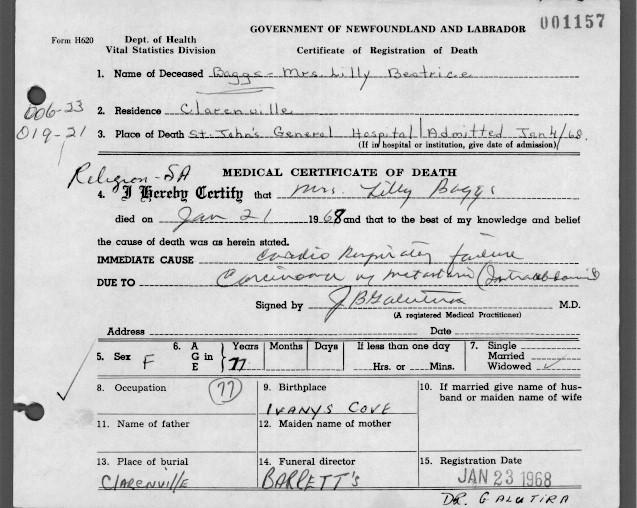 GOVERNMENT OF NEWFOUNDLAND AND LABRADOR
001157
Form H620
Dept. of Health
Vital Statistics Division
Certificate of Registration of Death
1. Name of Deceased Baggs - Mrs. Lilly Beatrice
006-23
2. Residence Clarenville
019-21
3. Place of Death St. John's General Hospital Admitted Jan 4/68.
(If in hospital or institution, give date of admission)
Religion - SA
MEDICAL CERTIFICATE OF DEATH
4. I Hereby Certify that Mrs. Lilly Baggs
died on Jan 21 1968 and that to the best of my knowledge and belief
the cause of death was as herein stated.
IMMEDIATE CAUSE Cardio Respiratory failure
DUE TO Carcinoma
Signed by M.D.
(A registered Medical Practitioner)
Address Date
5. Sex F 6. AGE in Years 77 Months Days If less than one day Hrs. or Mins. 7. Single Married Widowed ✓
8. Occupation 77 9. Birthplace IVANYS COVE 10. If married give name of husband or maiden name of wife
11. Name of father 12. Maiden name of mother
13. Place of burial CLARENVILLE 14. Funeral director BARRETT'S 15. Registration Date JAN 23 1968
DR. GALUTIRA